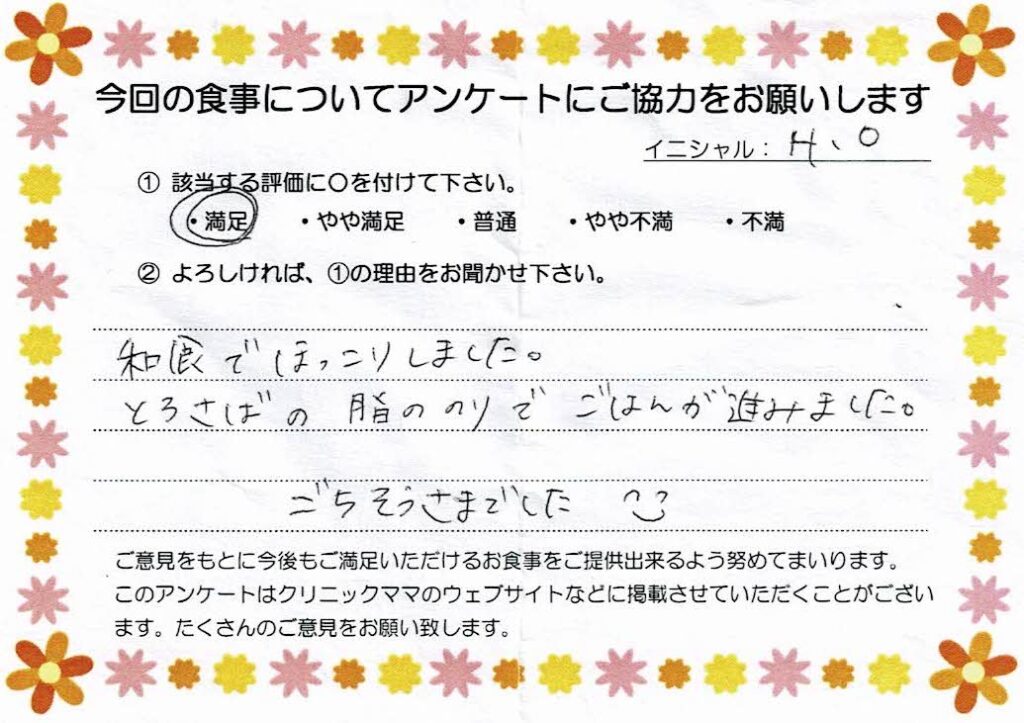 今回の食事についてアンケートにご協力をお願いします
イニシャル：H、O
① 該当する評価に〇を付けて下さい。
・満足 ・やや満足 ・普通 ・やや不満 ・不満
② よろしければ、①の理由をお聞かせ下さい。
和食でほっこりしました。
とろさばの 脂ののりで ごはんが進みました。
ごちそうさまでした
ご意見をもとに今後もご満足いただけるお食事をご提供出来るよう努めてまいります。
このアンケートはクリニックママのウェブサイトなどに掲載させていただくことがござい
ます。たくさんのご意見をお願い致します。